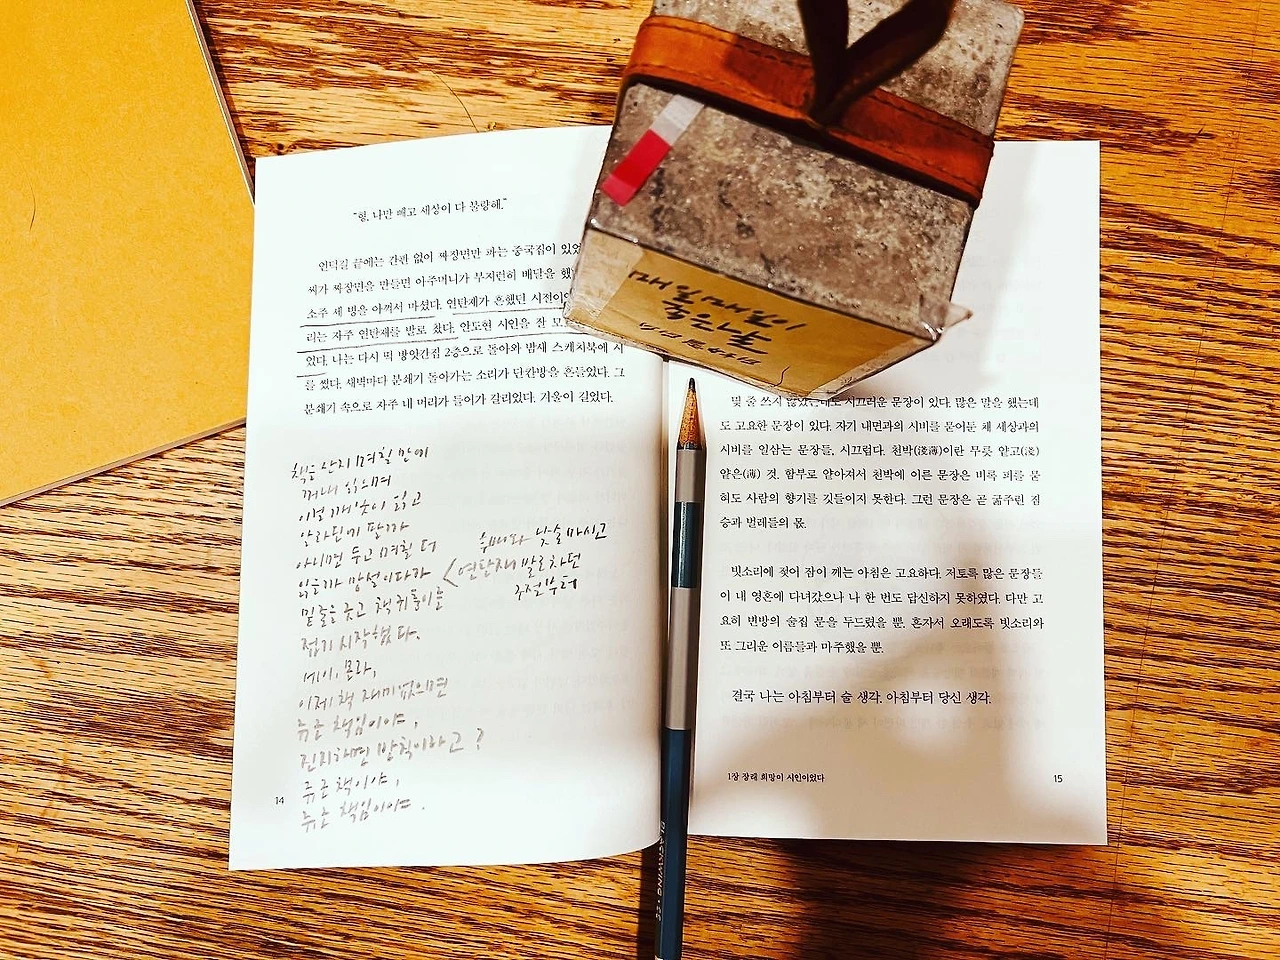 “형, 나만 빼고 세상이 다 불량해.”
언덕길 끝에는 간판 없이 짜장면만 파는 중국집이 있었
씨가 짜장면을 만들면 아주머니가 부지런히 배달을 했
소주 세 병을 아껴서 마셨다. 연탄재가 흔했던 시절이
리는 자주 연탄재를 발로 찼다. 안도현 시인을 잘 모
있다. 나는 다시 떡 방앗간집 2층으로 돌아와 밤새 스케치북에 시
를 썼다. 새벽마다 분쇄기 돌아가는 소리가 단칸방을 흔들었다. 그
분쇄기 속으로 자주 내 머리가 들어가 갈리었다. 겨울이 길었다.
책을 산지 며칠 만에
꺼내 읽으며
이걸 깨끗이 읽고
알라딘에 팔까
아니면 두고 며칠 더
읽을까 망설이다가
후배와 낮술 마시고
연탄재 발로 차던
구절부터
밑줄을 긋고 책귀퉁이를
접기 시작했다.
에이, 몰라,
이제 책 재미없으면
류근 책임이야,
진지하면 반칙이라고?
류근 책이야,
류근 책임이야.
14
몇 줄 쓰지 않았는데도 시끄러운 문장이 있다. 많은 말을 했는데
도 고요한 문장이 있다. 자기 내면과의 시비를 묻어둔 채 세상과의
시비를 일삼는 문장들, 시끄럽다. 천박(淺薄)이란 무릇 얕고(淺)
얇은(薄) 것. 함부로 얕아져서 천박에 이른 문장은 비록 피를 묻
혀도 사람의 향기를 깃들이지 못한다. 그런 문장은 곧 굶주린 짐
승과 벌레들의 몫.
빗소리에 젖어 잠이 깨는 아침은 고요하다. 저토록 많은 문장들
이 내 영혼에 다녀갔으나 나 한 번도 답신하지 못하였다. 다만 고
요히 변방의 술집 문을 두드렸을 뿐. 혼자서 오래도록 빗소리와
또 그리운 이름들과 마주했을 뿐.
결국 나는 아침부터 술 생각. 아침부터 당신 생각.
1장 장래 희망이 시인이었다
15
BLACKWING